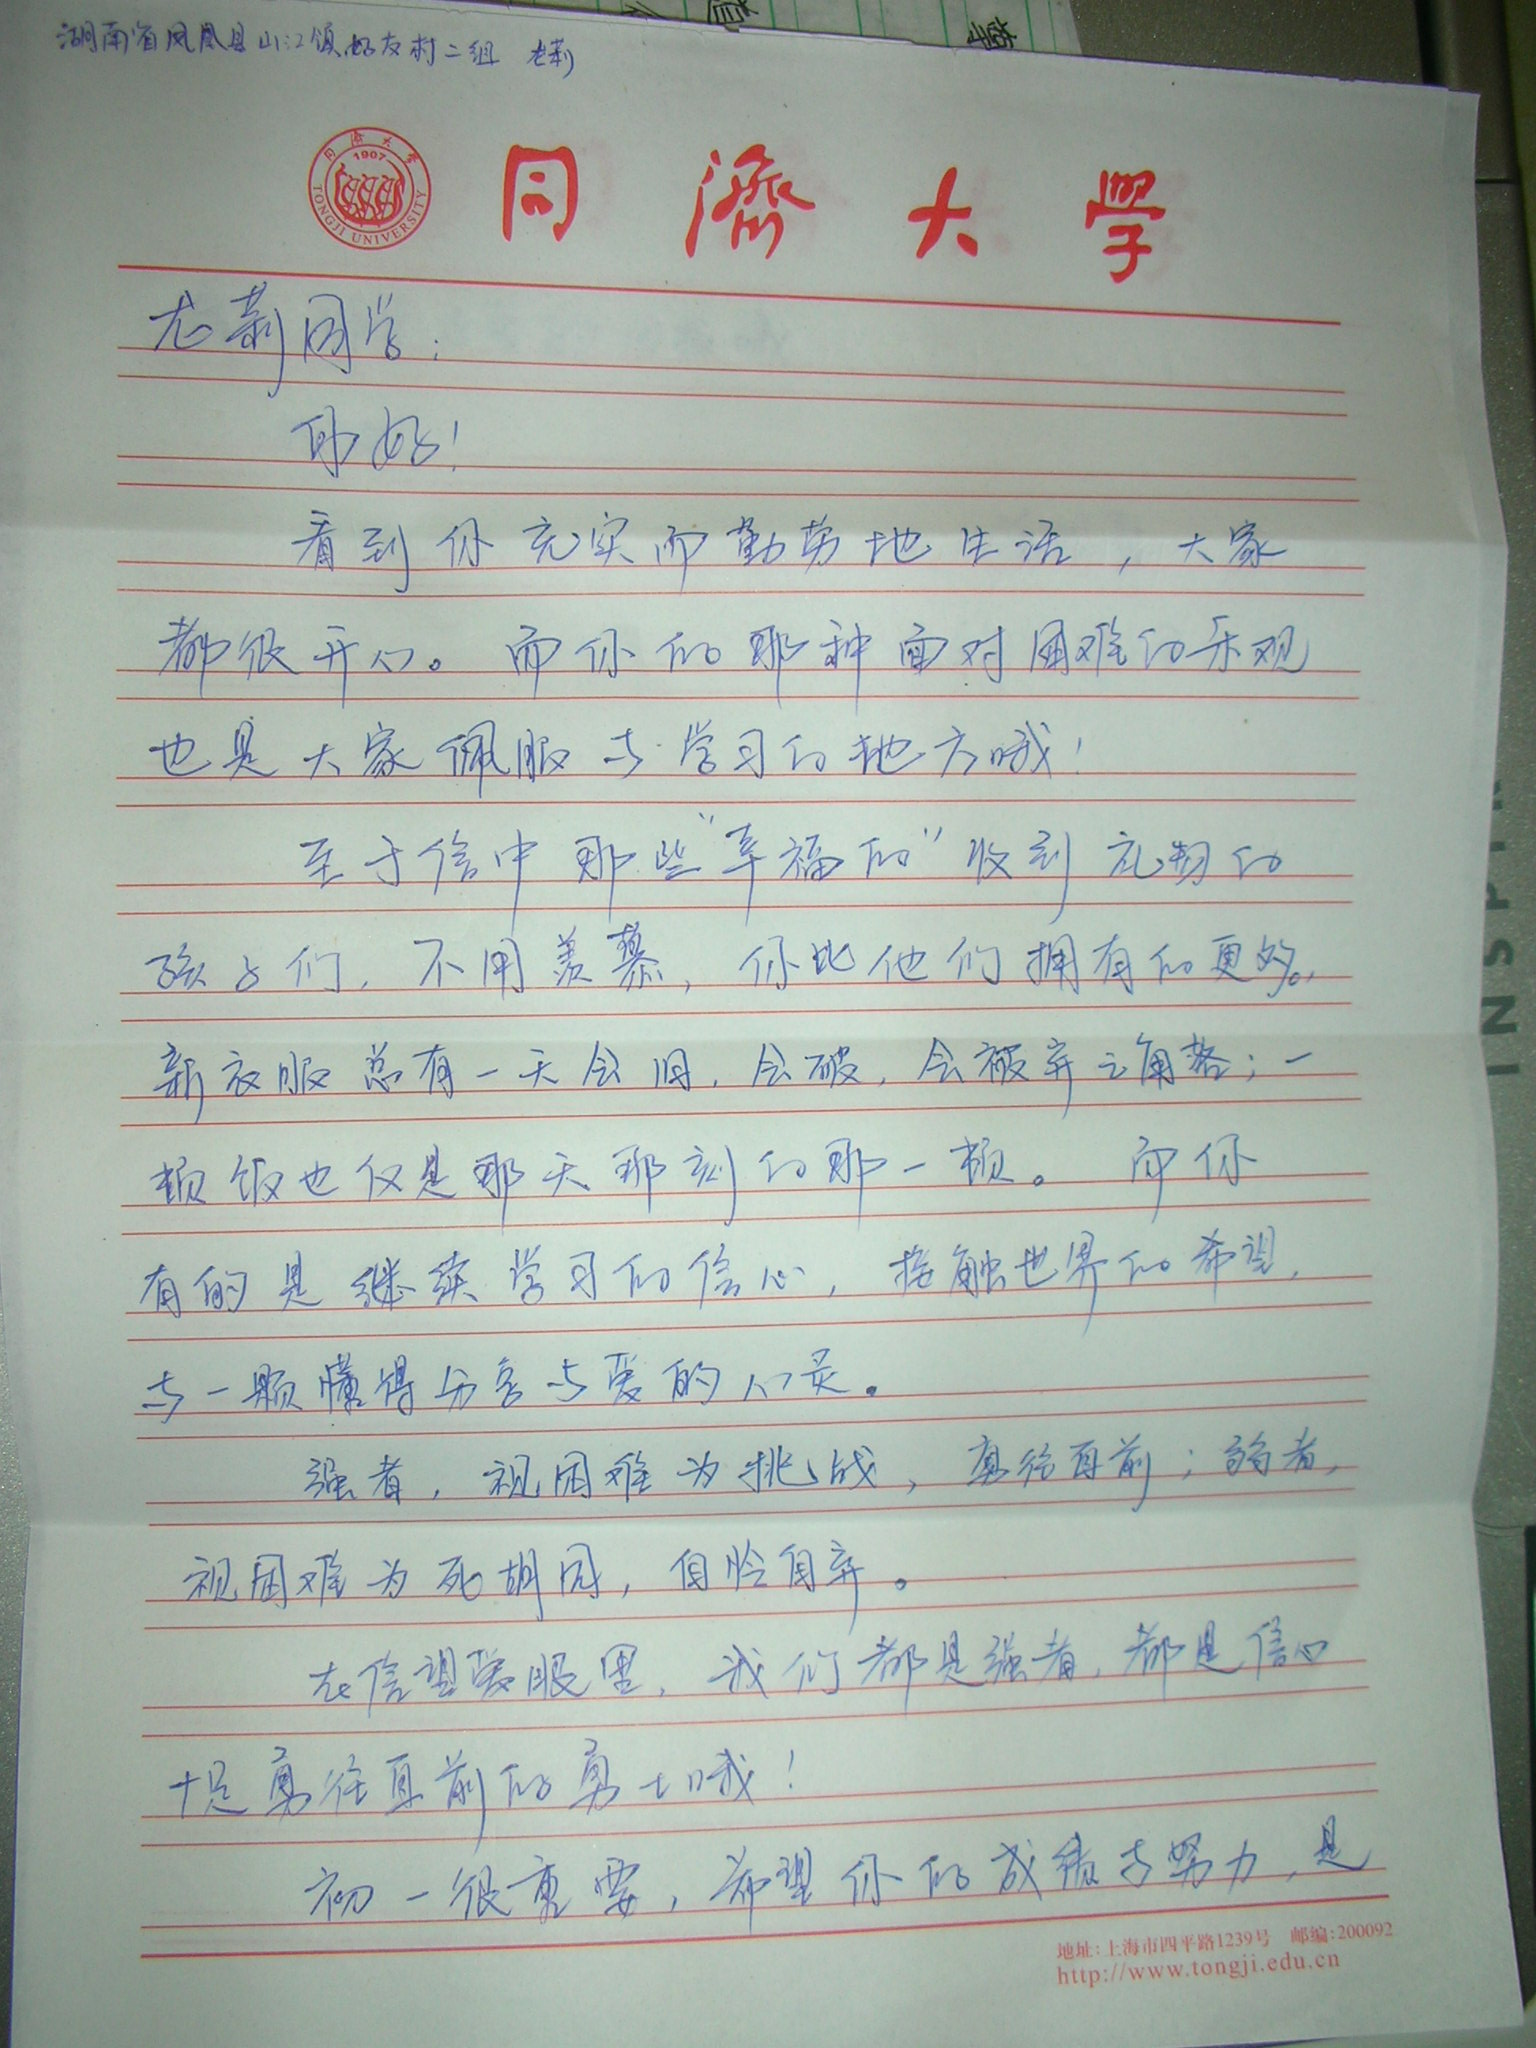 湖南省凤凰县山江镇好友村二组 龙莉
同濟大學
同濟大學
1907
TONGJI UNIVERSITY
龙莉同学：
你好！
看到你充实而勤劳地生活，大家
都很开心。而你的那种面对困难的乐观
也是大家佩服与学习的地方哦！
至于信中那些"幸福的"收到礼物的
孩子们，不用羡慕，你比他们拥有的更好。
新衣服总有一天会旧，会破，会被弃之角落；一
顿饭也仅是那天那刻的那一顿。而你
有的是继续学习的信心，接触世界的希望，
与一颗懂得分享与爱的心灵。
强者，视困难为挑战，勇往直前；弱者，
视困难为死胡同，自怜自弃。
在信望爱眼里，我们都是强者，都是信心
十足勇往直前的勇士哦！
初一很重要，希望你的成绩与努力，是
地址：上海市四平路1239号 邮编：200092
http://www.tongji.edu.cn
INSPIR